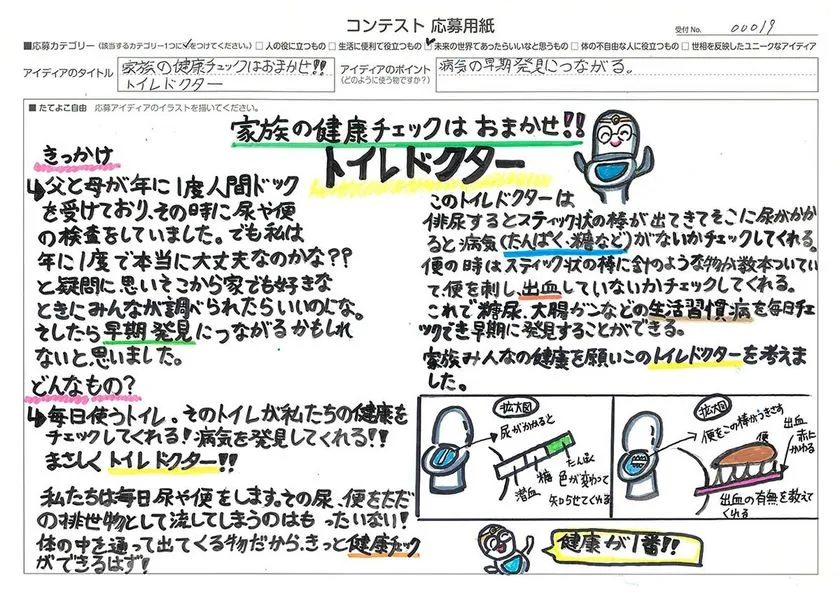 コンテスト 応募用紙
受付No. 00019
■応募カテゴリー（該当するカテゴリー1つに✓をつけてください。） □ 人の役に立つもの □ 生活に便利で役立つもの ☑ 未来の世界であったらいいなと思うもの □ 体の不自由な人に役立つもの □ 世相を反映したユニークなアイディア
アイディアのタイトル
家族の健康チェックはおまかせ!!
トイレドクター
アイディアのポイント
（どのように使う物ですか？）
病気の早期発見につながる。
■ たてよこ自由 応募アイディアのイラストを描いてください。
家族の健康チェックは おまかせ!!
トイレドクター
きっかけ
↳父と母が年に1度人間ドック
を受けており、その時に尿や便
の検査をしていました。でも私は
年に1度で本当に大丈夫なのかな??
と疑問に思いそこから家でも好きな
ときにみんなが調べられたらいいのにな。
そしたら早期発見につながるかもしれ
ないと思いました。
どんなもの?
↳毎日使うトイレ。そのトイレが私たちの健康を
チェックしてくれる!病気を発見してくれる!!
まさしくトイレドクター!!
私たちは毎日尿や便をします。その尿、便をただ
の排世物として流してしまうのはもったいない!
体の中を通って出てくる物だから、きっと健康チェック
ができるはず!
このトイレドクターは
俳尿するとスティック状の棒が出てきてそこに尿がかか
ると病気(たんぱく、糖など)がないかチェックしてくれる。
便の時はスティック状の棒に針のような物が数本ついてい
て、便を刺し、出血していないかチェックしてくれる。
これで糖尿、大腸ガンなどの生活習慣病を毎日チェ
ックでき早期に発見することができる。
家族みんなの健康を願いこのトイレドクターを考えま
した。
拡大図
尿がかかると
たんぱく
糖
潜血
色が変わって
知らせてくれる
拡大図
便をこの棒がうきさす
便
出血
赤に
かわる
出血の有無を教えて
くれる
健康が1番!!